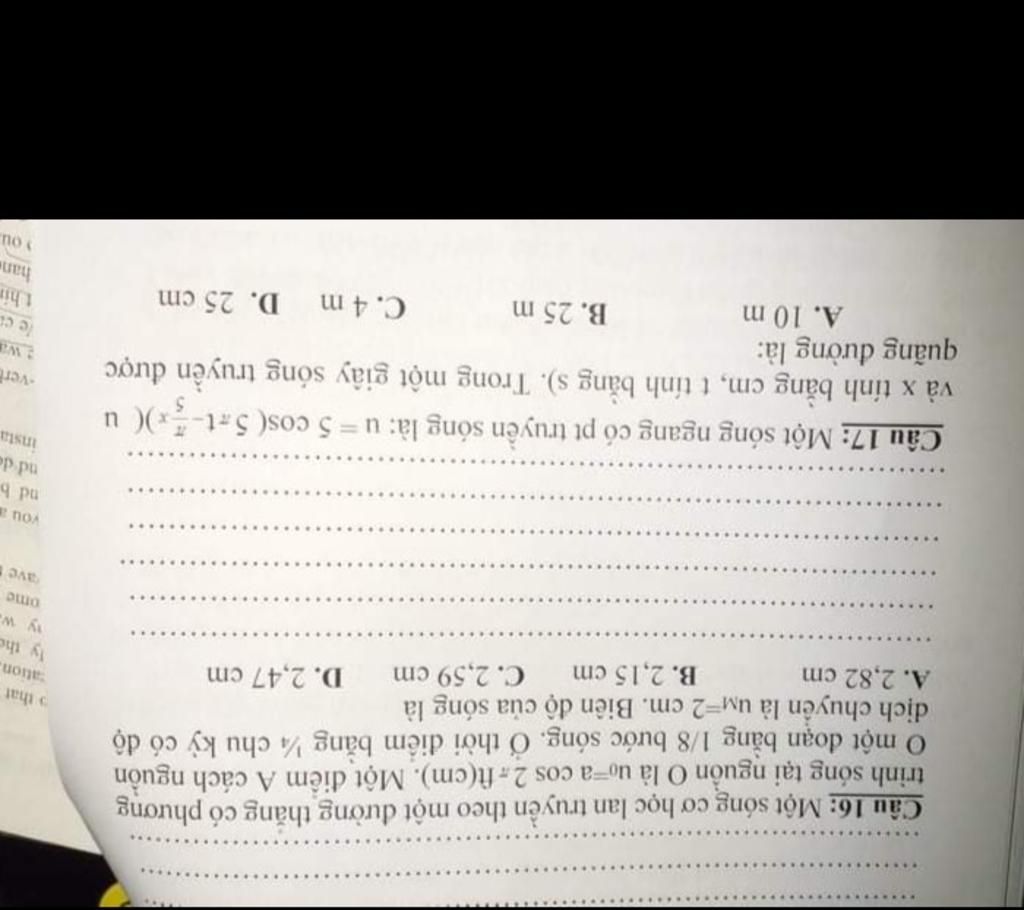 Câu 16: Một sóng cơ học lan truyền theo một đường thẳng có phương
trình sóng tại nguồn O là u₀=a cos 2π ft(cm). Một điểm A cách nguồn
O một đoạn bằng 1/8 bước sóng. Ở thời điểm bằng ¼ chu kỳ có độ
dịch chuyển là uM=2 cm. Biên độ của sóng là
A. 2,82 cm B. 2,15 cm C. 2,59 cm D. 2,47 cm
Câu 17: Một sóng ngang có pt truyền sóng là: u = 5 cos( 5πt-π/5 x)( u
và x tính bằng cm, t tính bằng s). Trong một giây sóng truyền được
quãng đường là:
A. 10 m B. 25 m C. 4 m D. 25 cm